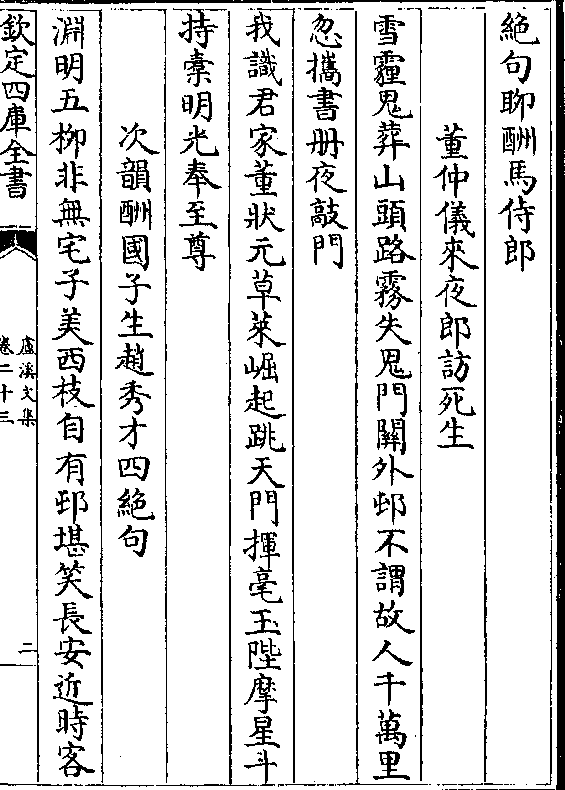 絶句聊酬馬侍郎
董仲儀來夜郎訪死生
雪霾鬼葬山頭路霧失鬼門關外邨不謂故人千萬里
忽攜書册夜敲門
我識君家董狀元草萊崛起跳天門揮毫玉陛摩星斗
持橐明光奉至尊
次韻酬國子生趙秀才四絶句
淵明五柳非無宅子美西枝自有邨堪笑長安近時客
欽定四庫全書
盧溪文集
卷二十三
二